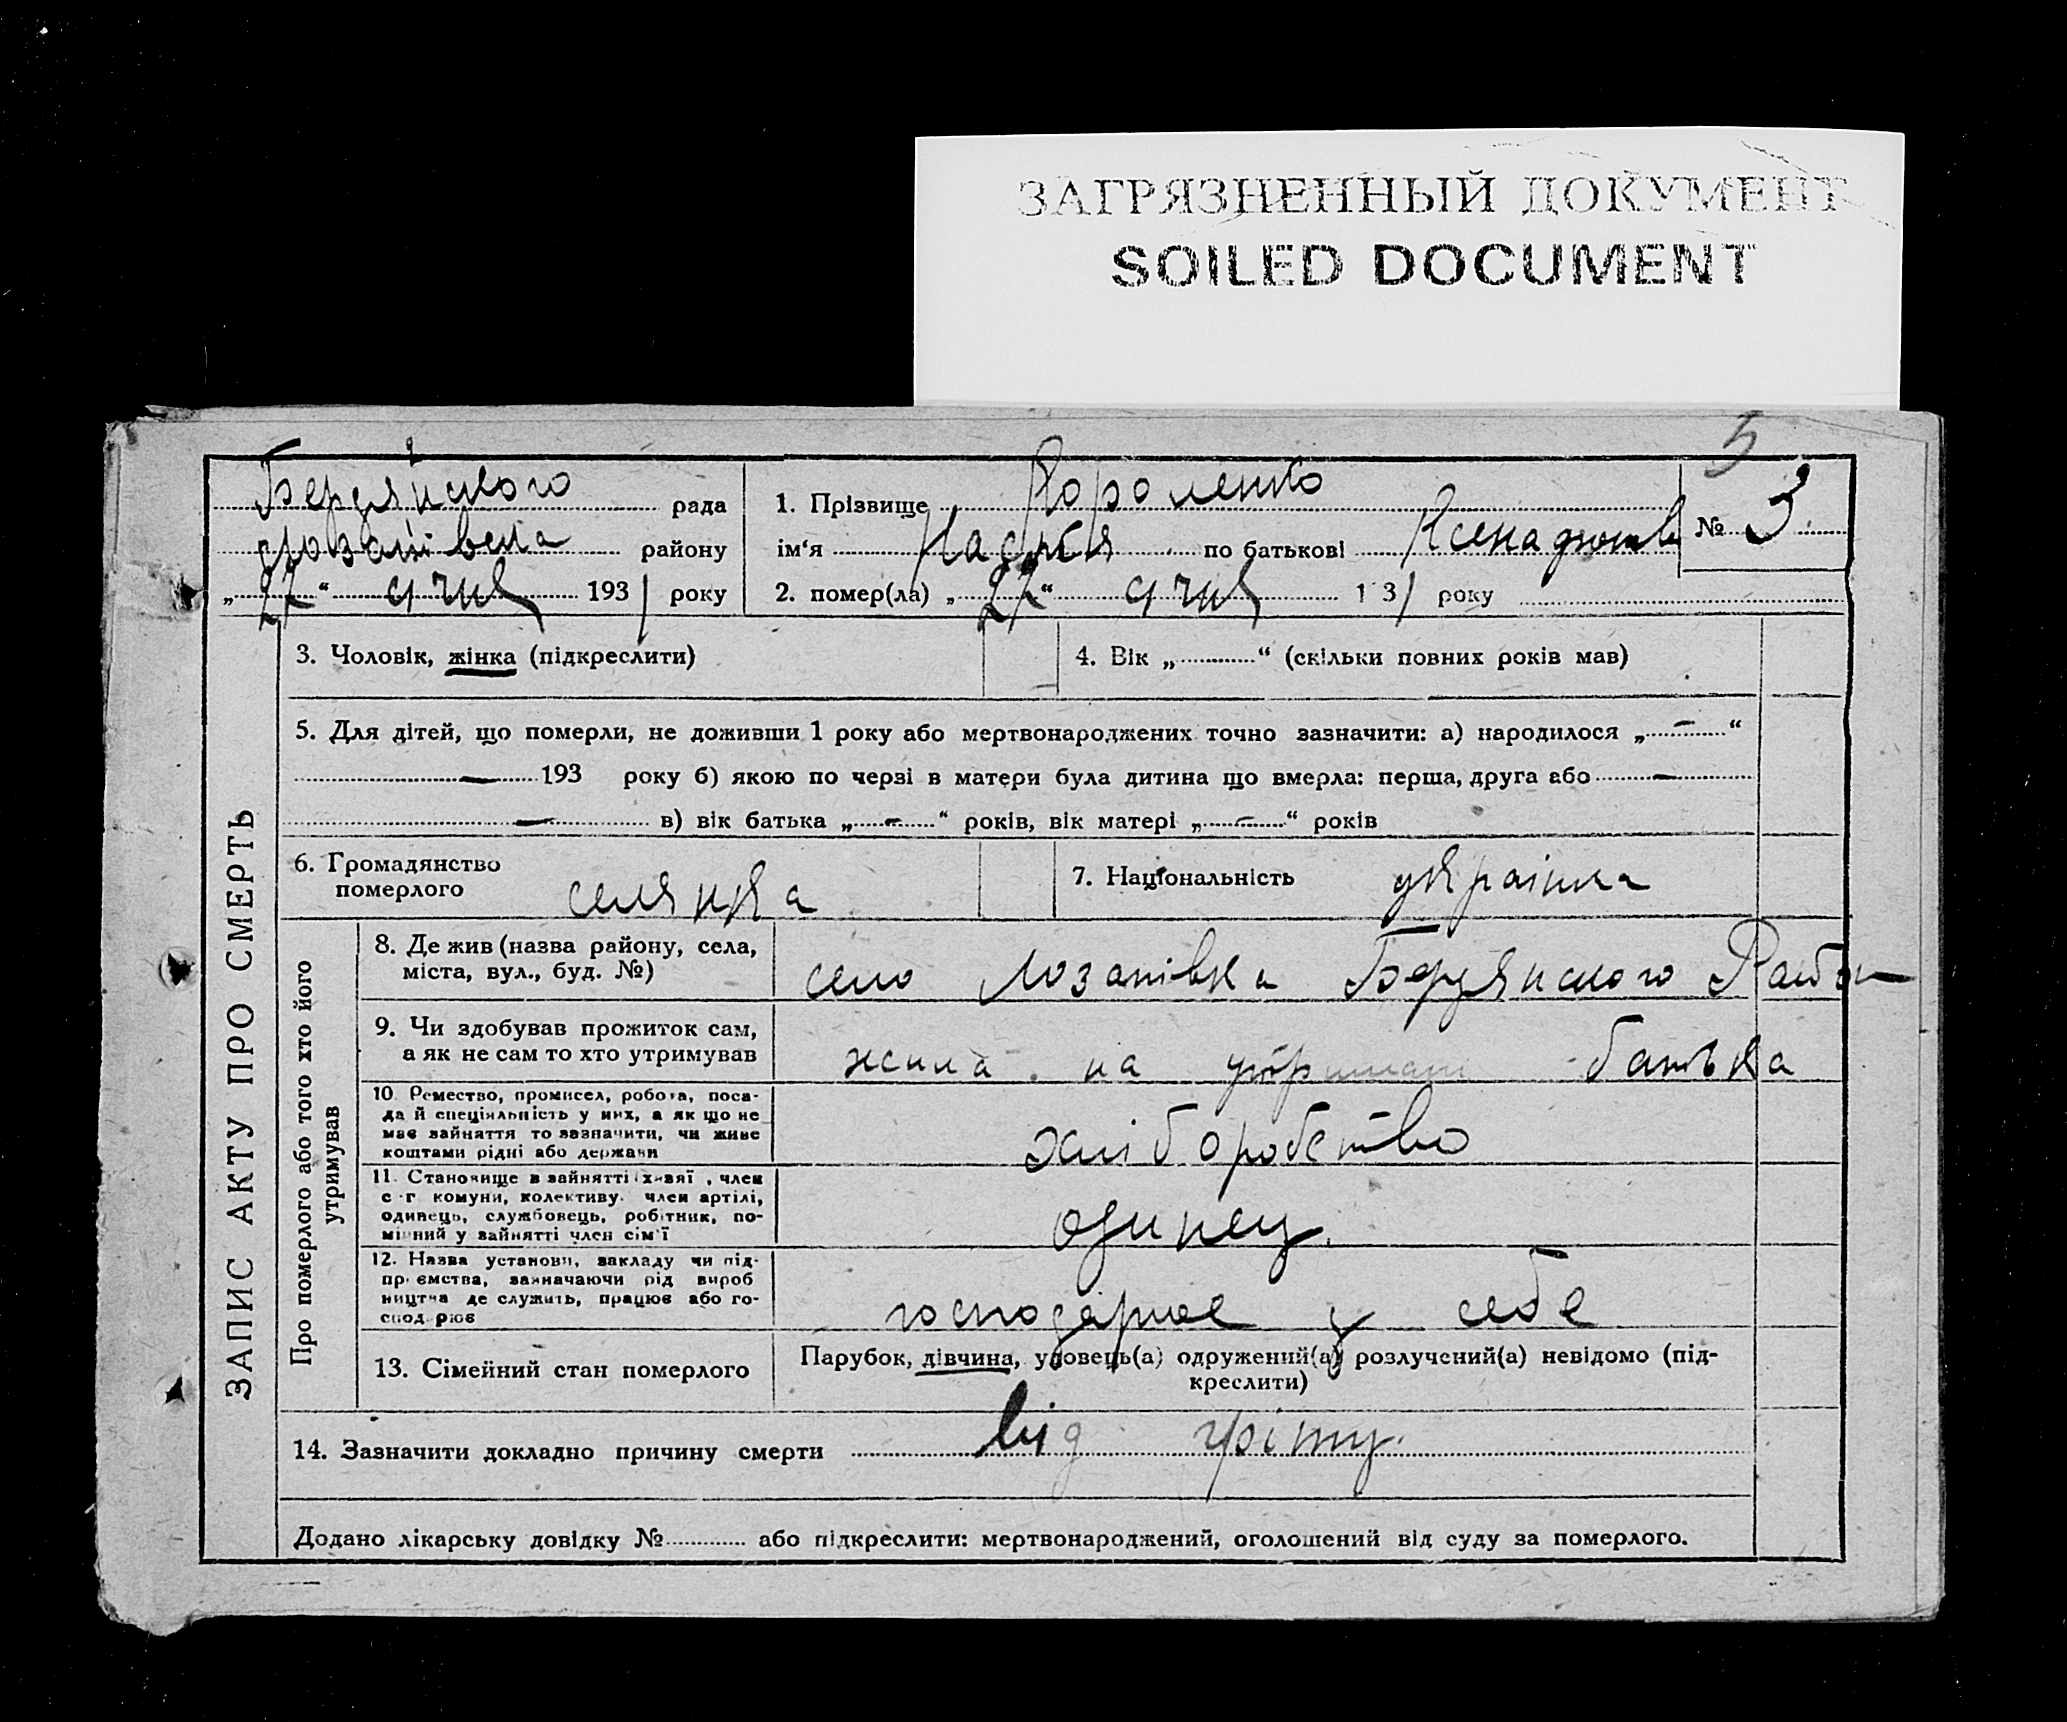 ЗАГРЯЗНЕННЫЙ ДОКУМЕНТ
SOILED DOCUMENT
5
Бердянского рада
району
„22“ січня 1931 року
1. Прізвище Короленко
№ 3
ім‘я Надежя по батькові
2. помер(ла) „22“ січня 1 31 року
ЗАПИС АКТУ ПРО СМЕРТЬ
3. Чоловік, жінка (підкреслити)
4. Вік „ “ (скільки повних років мав)
5. Для дітей, що померли, не доживши 1 року або мертвонароджених точно зазначити: а) народилося „ — “
— 193 року б) якою по черзі в матери була дитина що вмерла: перша, друга або —
— в) вік батька „ — “ років, вік матері „ — “ років
6. Громадянство
померлого селянка
7. Національність українка
Про померлого або того хто його
утримував
8. Де жив (назва району, села,
міста, вул., буд. №)
село Лозатівка Бердянского Району
9. Чи здобував прожиток сам,
а як не сам то хто утримував
жила на утримані батька
10. Ремество, промисел, робота, поса-
да й спеціяльність у них, а як що не
має зайняття то зазначити, чи живе
коштами рідні або держави
хліборобство
11. Становище в зайнятті хазяї , член
с-г комуни, колективу. член артілі,
одинець, службовець, робітник, по-
мічний у зайнятті член сім'ї
одинец.
12. Назва установи, закладу чи під-
приємства, зазначаючи рід вироб
ництва де служить, працює або го-
спод рює
господарює у себе
13. Сімейний стан померлого
Парубок, дівчина, удовець(а) одружений(а) розлучений(а) невідомо (під-
креслити)
14. Зазначити докладно причину смерти від гріпу.
Додано лікарську довідку № або підкреслити: мертвонароджений, оголошений від суду за померлого.